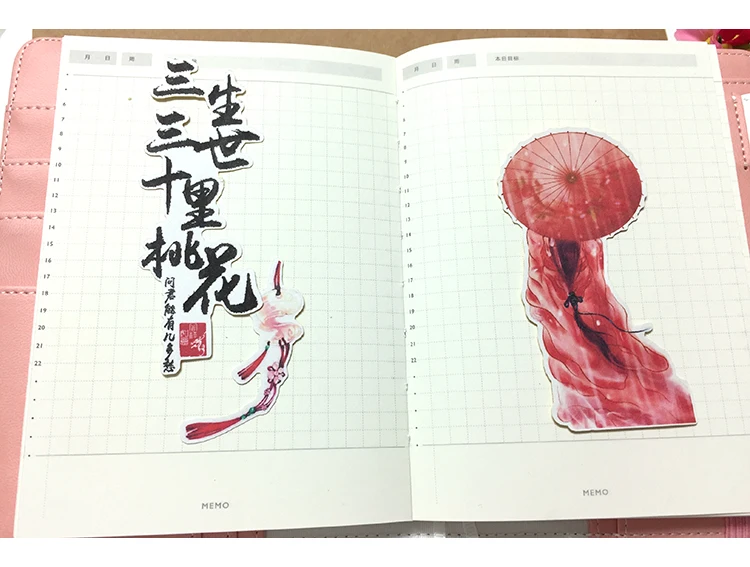 月 日 周
三生
三世
十里
桃花
问君能有几多愁
6
7
8
9
10
11
12
14
15
16
17
18
19
20
21
22
MEMO
月 日 周
6
7
8
9
10
11
12
14
15
16
17
18
19
20
21
22
MEMO